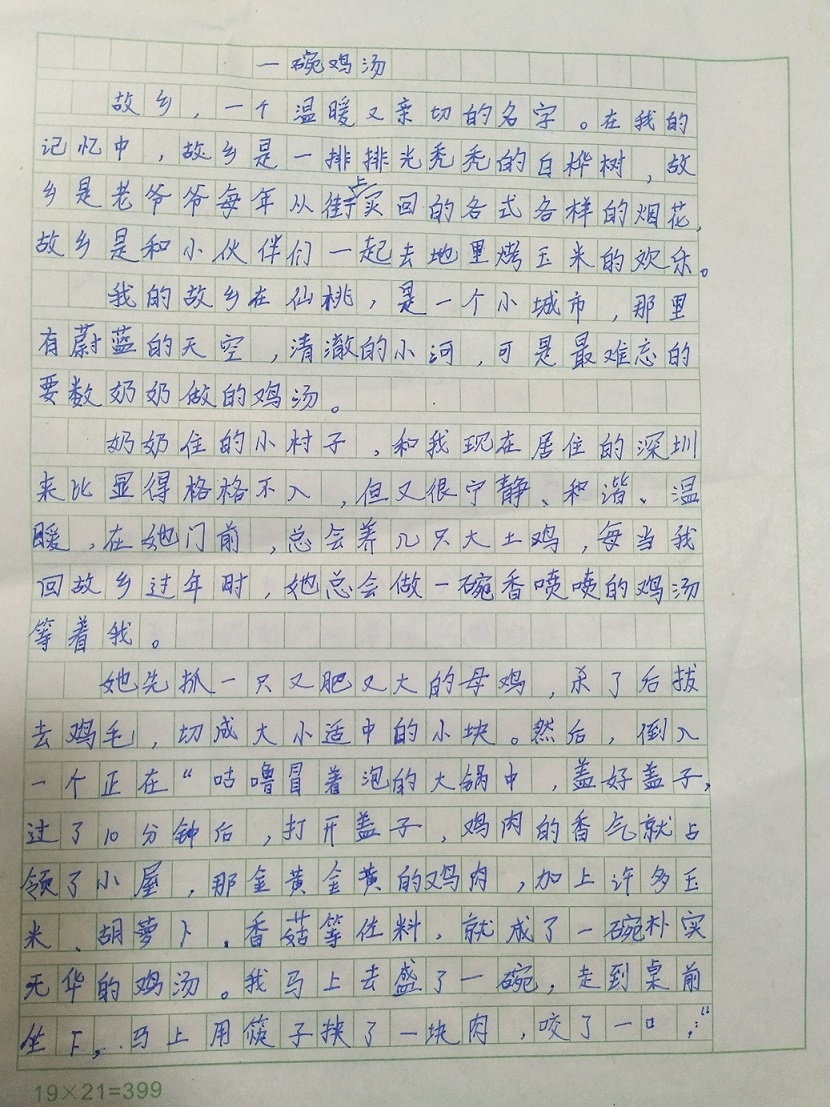 一碗鸡汤
故乡，一个温暖又亲切的名字。在我的
记忆中，故乡是一排排光秃秃的白桦树，故
乡是老爷爷每年从街上买回的各式各样的烟花，
故乡是和小伙伴们一起去地里烤玉米的欢乐。
我的故乡在仙桃，是一个小城市，那里
有蔚蓝的天空，清澈的小河，可是最难忘的
要数奶奶做的鸡汤。
奶奶住的小村子，和我现在居住的深圳
来比显得格格不入，但又很宁静、和谐、温
暖，在她门前，总会养几只大土鸡，每当我
回故乡过年时，她总会做一碗香喷喷的鸡汤
等着我。
她先抓一只又肥又大的母鸡，杀了后拔
去鸡毛，切成大小适中的小块。然后，倒入
一个正在“咕噜冒着泡的大锅中，盖好盖子，
过了10分钟后，打开盖子，鸡肉的香气就占
领了小屋，那金黄金黄的鸡肉，加上许多玉
米、胡萝卜、香菇等佐料，就成了一碗朴实
无华的鸡汤。我马上去盛了一碗，走到桌前
坐下，马上用筷子挟了一块肉，咬了一口，：“
19×21=399